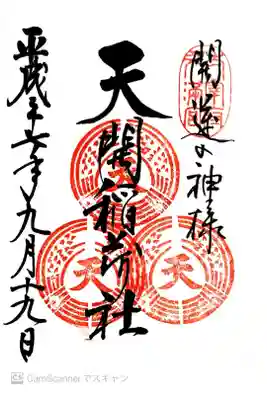 開運の神様
天開稲荷社
平成二十七年九月十九日
天
天
CS CamScanner でスキャン